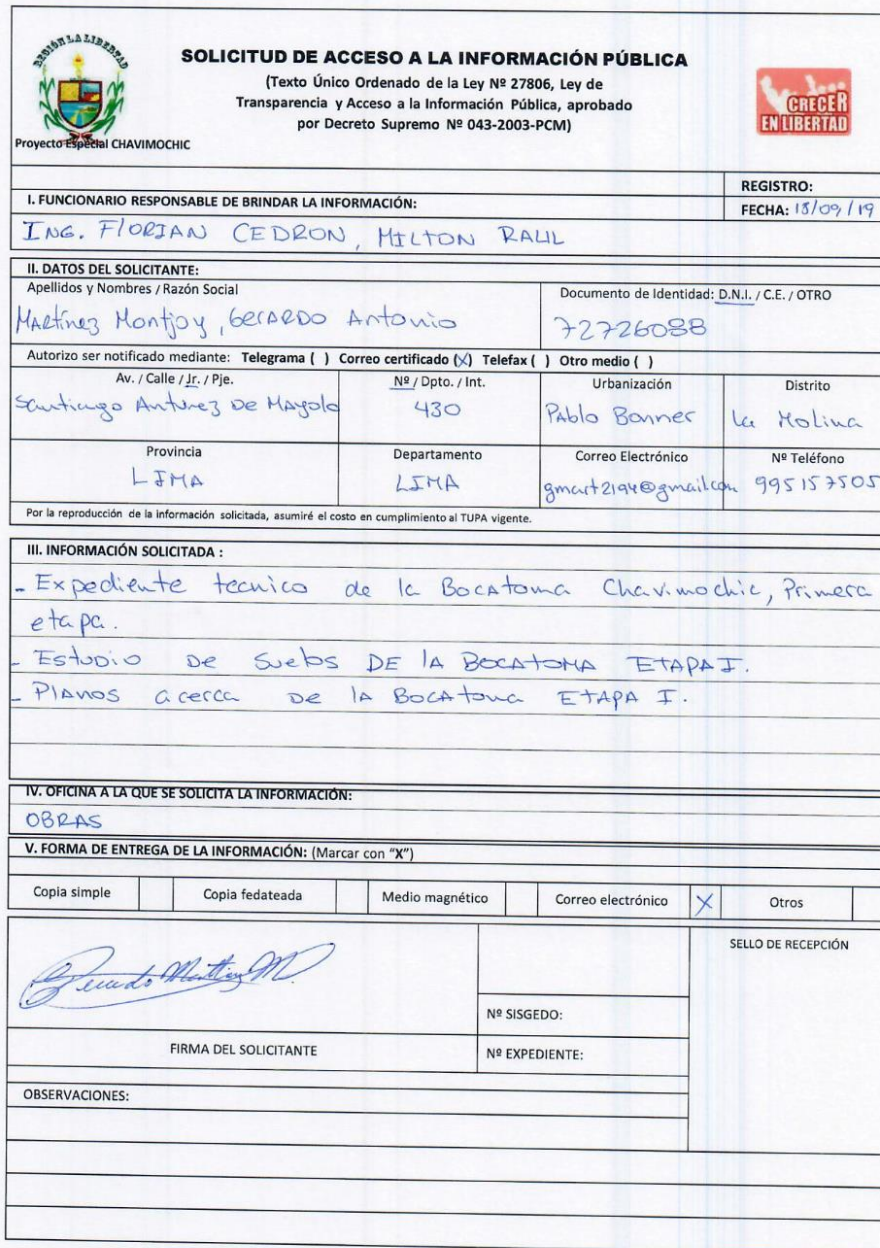 REGIÓN LA LIBERTAD
SOLICITUD DE ACCESO A LA INFORMACIÓN PÚBLICA
(Texto Único Ordenado de la Ley Nº 27806, Ley de
Transparencia y Acceso a la Información Pública, aprobado
por Decreto Supremo Nº 043-2003-PCM)
CRECER
EN LIBERTAD
Proyecto Especial CHAVIMOCHIC
REGISTRO:
I. FUNCIONARIO RESPONSABLE DE BRINDAR LA INFORMACIÓN:
FECHA: 18/09/19
ING. FlORIAN CEDRON, MILTON RAUL
II. DATOS DEL SOLICITANTE:
Apellidos y Nombres / Razón Social
Documento de Identidad: D.N.I. / C.E. / OTRO
MARtínez Montjoy, GerARDO Antonio
72726088
Autorizo ser notificado mediante: Telegrama ( ) Correo certificado (X) Telefax ( ) Otro medio ( )
Av. / Calle / Jr. / Pje.
Nº / Dpto. / Int.
Urbanización
Distrito
Santiago Antunez De Mayolo
430
PAblo Bonner
La Molina
Provincia
Departamento
Correo Electrónico
Nº Teléfono
LIMA
LIMA
gmart2194@gmail.com
995157505
Por la reproducción de la información solicitada, asumiré el costo en cumplimiento al TUPA vigente.
III. INFORMACIÓN SOLICITADA :
- Expediente tecnico de la BocAtoma Chavimochic, Primera
etapa.
- EstuDio De Suelos DE lA BOCATOMA ETAPA I.
- PlANos acerca De lA BocAtoma ETAPA I.
IV. OFICINA A LA QUE SE SOLICITA LA INFORMACIÓN:
OBRAS
V. FORMA DE ENTREGA DE LA INFORMACIÓN: (Marcar con "X")
Copia simple
Copia fedateada
Medio magnético
Correo electrónico
X
Otros
SELLO DE RECEPCIÓN
Gerardo Martínez M.
Nº SISGEDO:
FIRMA DEL SOLICITANTE
Nº EXPEDIENTE:
OBSERVACIONES: